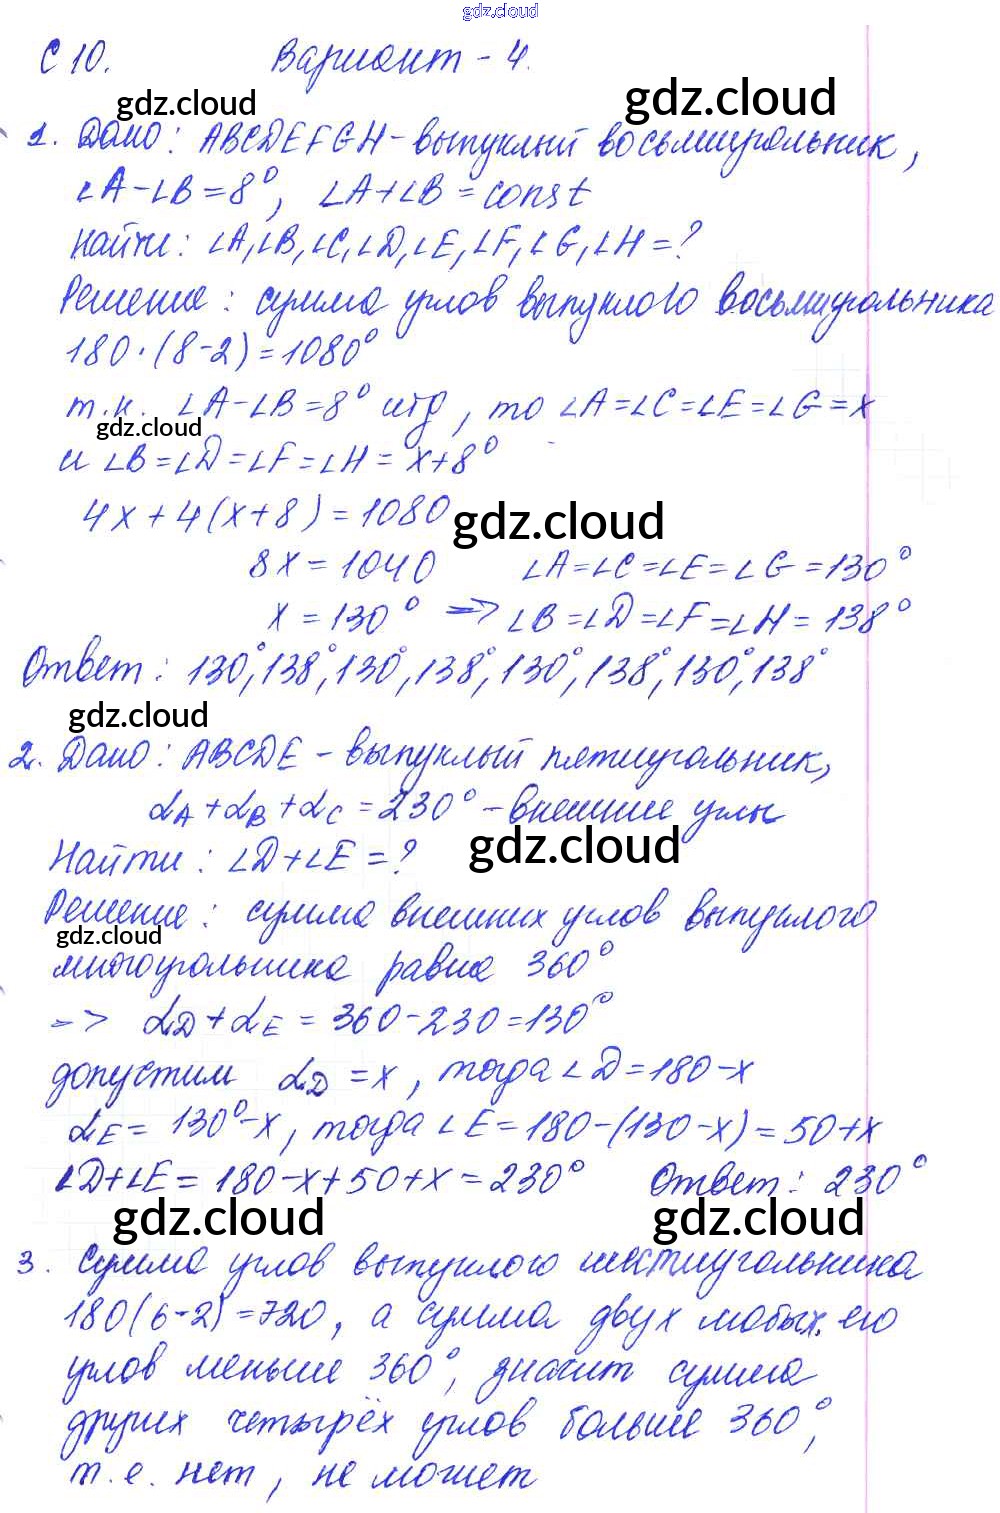 gdz.cloud
С 10. Вариант - 4.
gdz.cloud gdz.cloud
1. Дано: ABCDEFGH - выпуклый восьмиугольник,
∠A-∠B=8°, ∠A+∠B=const
Найти: ∠A,∠B,∠C,∠D,∠E,∠F,∠G,∠H=?
Решение: сумма углов выпуклого восьмиугольника
180·(8-2)=1080°
т.к. ∠A-∠B=8° итд, то ∠A=∠C=∠E=∠G=x
gdz.cloud
и ∠B=∠D=∠F=∠H=x+8°
4x+4(x+8)=1080
gdz.cloud
8x=1040 ∠A=∠C=∠E=∠G=130°
x=130° => ∠B=∠D=∠F=∠H=138°
Ответ: 130°,138°,130°,138°,130°,138°,130°,138°
gdz.cloud
2. Дано: ABCDE - выпуклый пятиугольник,
∠A+∠B+∠C=230° - внешние углы
gdz.cloud
Найти: ∠D+∠E=?
Решение: сумма внешних углов выпуклого
gdz.cloud
многоугольника равна 360°
=> ∠D+∠E=360-230=130°
допустим ∠D=x, тогда ∠D=180-x
∠E=130°-x, тогда ∠E=180-(130-x)=50+x
∠D+∠E=180-x+50+x=230° Ответ: 230°
gdz.cloud gdz.cloud
3. Сумма углов выпуклого шестиугольника
180(6-2)=720, а сумма двух любых его
углов меньше 360°, значит сумма
других четырёх углов больше 360°,
т.е. нет, не может